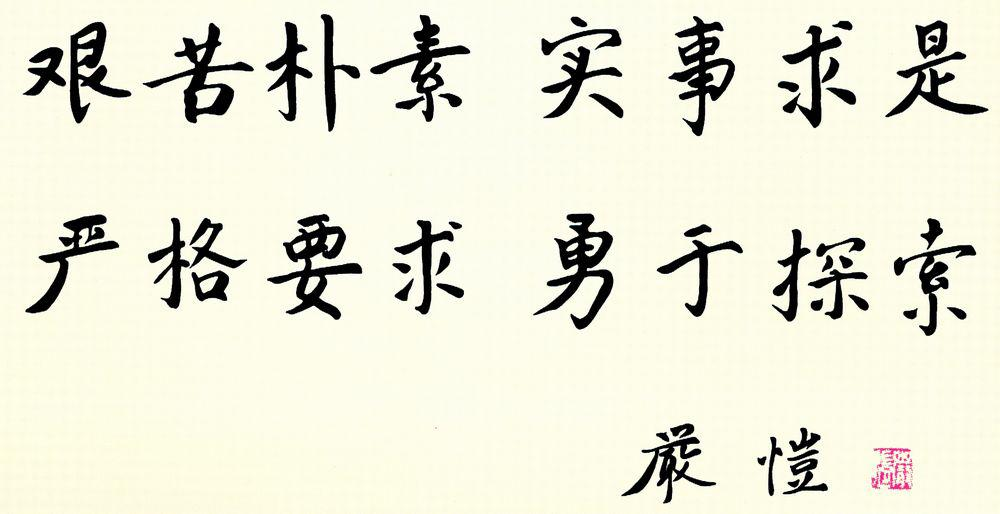 艰苦朴素 实事求是
严格要求 勇于探索
嚴愷